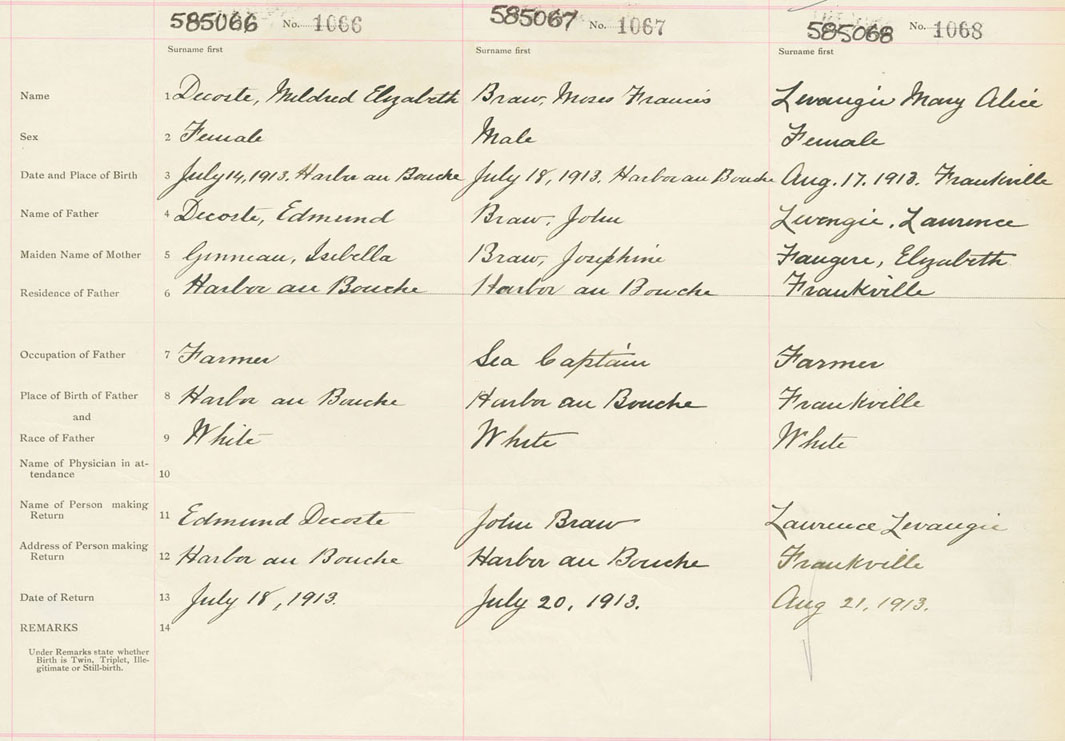 585066 No. 1066 585067 No. 1067 585068 No. 1068
Surname first Surname first Surname first
Name 1 Decoste, Mildred Elizabeth Braw, Moses Francis Levangie Mary Alice
Sex 2 Female Male Female
Date and Place of Birth 3 July 14, 1913. Harbor au Bouche July 18, 1913. Harbor au Bouche Aug. 17. 1913. Frankville
Name of Father 4 Decoste, Edmund Braw, John Levangie, Laurence
Maiden Name of Mother 5 Isibella Braw, Josephine Faugere, Elizabeth
Residence of Father 6 Harbor au Bouche Harbor au Bouche Frankville
Occupation of Father 7 Farmer Sea Captain Farmer
Place of Birth of Father 8 Harbor au Bouche Harbor au Bouche Frankville
and
Race of Father 9 White White White
Name of Physician in at-
tendance 10
Name of Person making
Return 11 Edmund Decoste John Braw Laurence Levangie
Address of Person making
Return 12 Harbor au Bouche Harbor au Bouche Frankville
Date of Return 13 July 18, 1913. July 20, 1913. Aug 21, 1913.
REMARKS 14
Under Remarks state whether
Birth is Twin, Triplet, Ille-
gitimate or Still-birth.